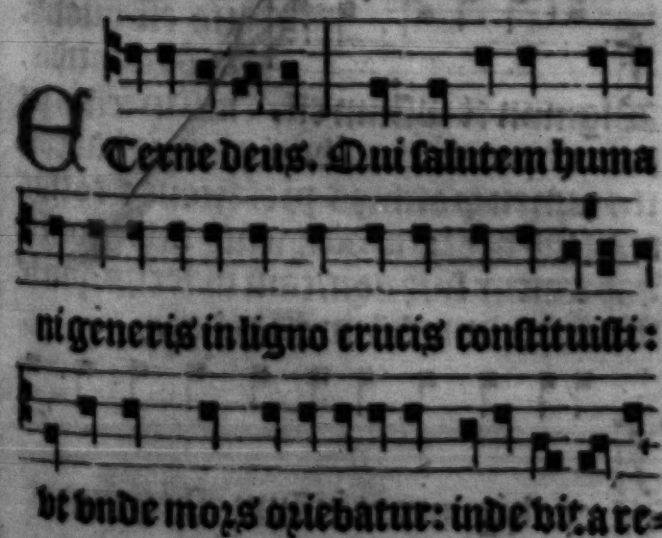 ETerne deus. Qui salutem huma
ni generis in ligno crucis constituisti:
vt vnde mors oriebatur: inde vita re=